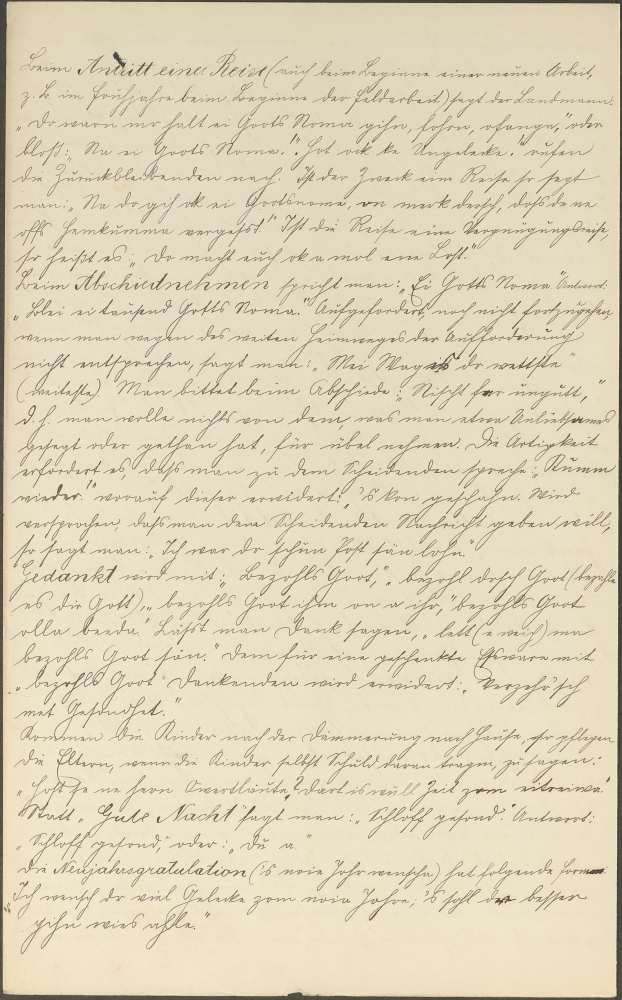 Beim Antritt einer Reise (auch beim Beginne einer neuen Arbeit,
z. B. im Frühjahre beim Beginne der Feldarbeit) sagt der Landmann:
„Do warn mr halt ei Goots Noma gihn, fohrn, ofanga," oder
bloß: „Na ei Goots Noma." „Hot ock ke Ungelecke." rufen
die Zurückbleibenden nach. Ist der Zweck eine Reise so sagt
man: „Na do gih ok ei Gootsnoma, on merk dersch, doß de ne
offs Hemkumma vergeßt." Ist die Reise eine Vergnügungsreise,
so heißt es: „Do macht euch ok a mol ene Lost."
Beim Abschiednehmen spricht man: „Ei Gotts Noma" Antwort:
„Blei ei tausend Gotts Noma." Aufgefordert, noch nicht fortzugehen,
wenn man wegen des weiten Heimweges der Aufforderung
nicht entsprechen, sagt man: „Mei Weg is dr wettste"
(weiteste). Man bittet beim Abschiede: „Nischt fer ungutt,"
d. h. man wolle nichts von dem, was man etwa Unliebsames
gesagt oder gethan hat, für übel nehmen. Die Artigkeit
erfordert es, daß man zu dem Scheidenden spreche: „Kumm
wieder." worauf dieser erwidert: „'s kon geschahn. Wird
versprochen, daß man dem Scheidenden Nachricht geben will,
so sagt man: „Ich war dr schun Post sän lohn."
Gedankt wird mit: „Bezohls Goot," „bezohl dersch Goot (bezahle
es dir Gott)," „bezohls Goot ihm on a ihr," „bezohls Goot
olla beeda." Läßt man Dank sagen, „lett (e mich) ma
bezohls Goot sän." Dem für eine geschenkte Eßware mit
„bezohls Goot" Dankenden wird erwidert: „Verzehr's'ch
met Gesondhet."
Kommen die Kinder nach der Dämmerung nach Hause, so pflegen
die Eltern, wenn die Kinder selbst Schuld daran tragen, zu sagen:
„Host se ne hern Owertläuta? Dart is wull Zeit zom eitreiwa."
Statt „Gute Nacht" sagt man: „Schloff gesond." Antwort:
„Schloff gesond," oder: „Du a"
Die Neujahrsgratulation ('s neie Johr wenscha) hat folgende Formen
„Ich wensch dr viel Gelecke zom neia Johre, 's sohl der besser
gihn wies ahle."